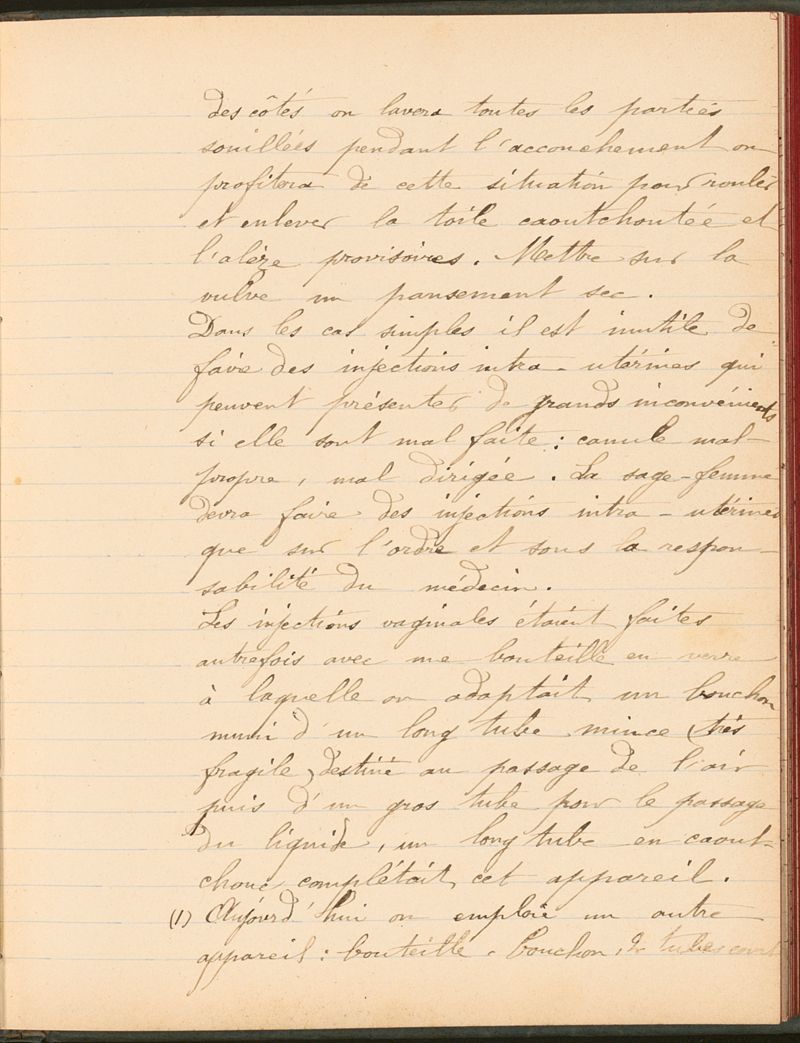 des côtés on lavera toutes les parties
souillées pendant l'accouchement on
profitera de cette situation pour rouler
et enlever la toile caoutchoutée et
l'alèze provisoires. Mettre sur la
vulve un pansement sec.
Dans les cas simples il est inutile de
faire des injections intra-utérines qui
peuvent présenter de grands inconvénients
si elle sont mal faite : canule mal-
propre, mal dirigée. La sage-femme
devra faire des injections intra-utérines
que sur l'ordre et sous la respon-
sabilité du médecin.
Les injections vaginales étaient faites
autrefois avec une bouteille en verre
à laquelle on adaptait un bouchon
muni d'un long tube mince (très
fragile) destiné au passage de l'air
puis d'un gros tube pour le passage
du liquide, un long tube en caout-
chouc complétait cet appareil.
(1) Aujourd'hui on emploie un autre
appareil : bouteille, bouchon, 2 tubes court